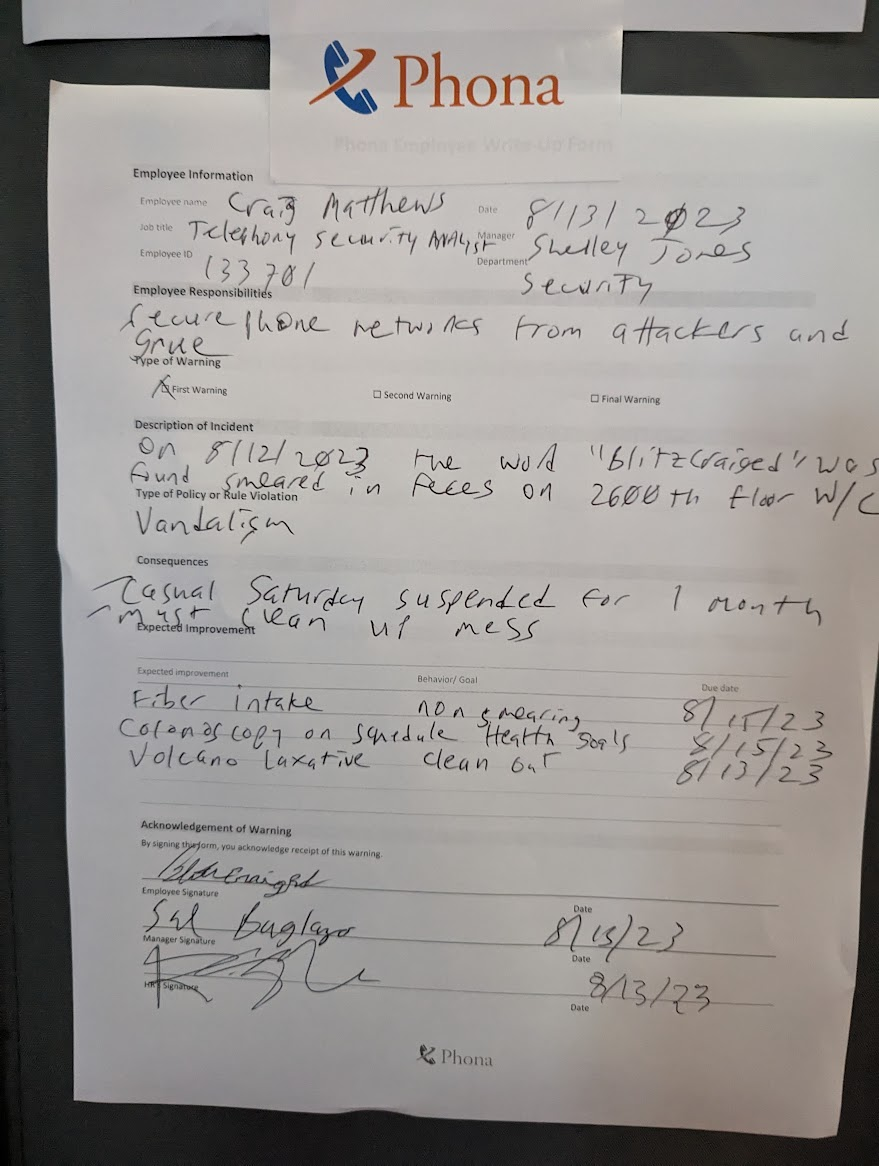 Phona
Phona Employee Write-Up Form
Employee Information
Employee name Craig Matthews Date 8/13/2023
Job title Telephony Security Analyst Manager Shelley Jones
Employee ID 133701 Department Security
Employee Responsibilities
Secure phone networks from attackers and
Grue
Type of Warning
☒ First Warning ☐ Second Warning ☐ Final Warning
Description of Incident
On 8/12/2023 the word "Blitzcraiged" was
found smeared in feces on 2600th floor W/C
Type of Policy or Rule Violation
Vandalism
Consequences
Casual Saturday suspended for 1 month
Must clean up mess
Expected Improvement
Expected improvement Behavior/ Goal Due date
Fiber intake non smearing 8/15/23
Colonoscopy on schedule Health goals 8/15/23
Volcano Laxative clean out 8/13/23
Acknowledgement of Warning
By signing this form, you acknowledge receipt of this warning.
Employee Signature Date
Sal 8/13/23
Manager Signature Date
8/13/23
HR Signature Date
Phona